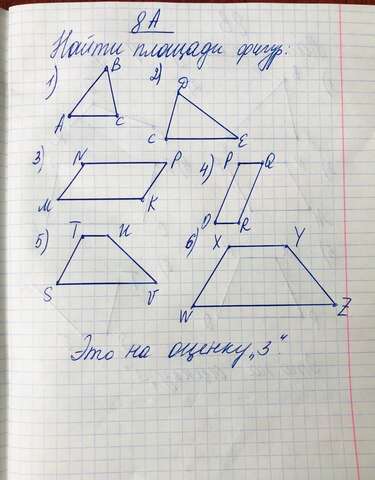 8А
Найти площади фигур:
1) A B C
2) C D E
3) M N P K
4) O P Q R
5) S T U V
6) W X Y Z
Это на оценку „3“